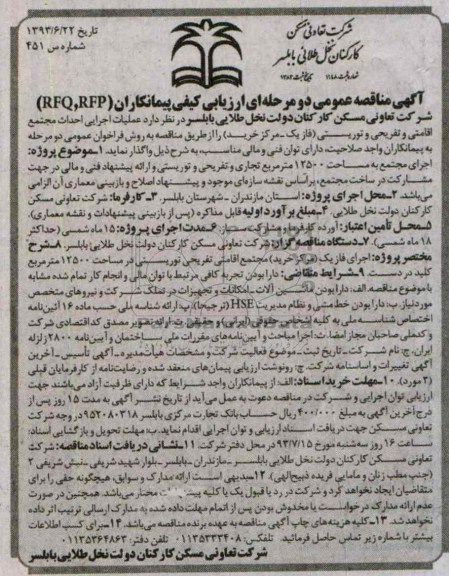 شرکت تعاونی مسکن
کارکنان نخل طلائی بابلسر
تاریخ ۱۳۹۳/۶/۲۲
شماره س ۴۵۱
آگهی مناقصه عمومی دو مرحله‌ای ارزیابی کیفی پیمانکاران (RFQ,RFP)
شرکت تعاونی مسکن کارکنان دولت نخل طلایی بابلسر در نظر دارد عملیات اجرایی احداث مجتمع
اقامتی و تفریحی و توریستی (فاز یک - مرکز خرید) را از طریق مناقصه به روش فراخوان عمومی دو مرحله
به پیمانکاران واجد صلاحیت، دارای توان فنی و مالی مناسب، به شرح ذیل واگذار نماید. ۱ـ موضوع پروژه:
اجرای مجتمع به مساحت ۱۲۵۰۰ مترمربع تجاری و تفریحی و توریستی و ارائه پیشنهاد فنی و مالی در جهت
مشارکت در ساخت مجتمع، براساس نقشه سازه‌ای موجود و پیشنهاد اصلاح و بازبینی معماری آن الزامی
می‌باشد. ۲ـ محل اجرای پروژه: استان مازندران - شهرستان بابلسر. ۳ـ کارفرما: شرکت تعاونی مسکن
کارکنان دولت نخل طلایی. ۴ـ مبلغ برآورد اولیه قابل مذاکره (پس از بازبینی پیشنهادات و نقشه معماری).
۵ـ محل تأمین اعتبار: آورده کارفرما و مشارکت ۶ـ مدت اجرای پروژه: ۱۵ ماه شمسی (حداکثر
۱۸ ماه شمسی). ۷ـ دستگاه مناقصه گزار: شرکت تعاونی مسکن کارکنان دولت نخل طلایی بابلسر. ۸ـ شرح
مختصر پروژه: اجرای فاز یک (مرکز خرید) مجتمع اقامتی تفریحی توریستی در مساحت ۱۲۵۰۰ مترمربع
کلید در دست. ۹ـ شرایط متقاضی: دارا بودن تجربه کافی مرتبط با توان مالی و انجام کار تمام شده مشابه
با موضوع مناقصه. الف: دارا بودن ماشین آلات - امکانات و تجهیزات در تملک شرکت و نیروهای متخصص
مورد نیاز. ب: دارا بودن خط مشی و نظام مدیریت HSE (ترجیحا). پ: ارائه شناسه ملی حسب ماده ۱۶ آئین‌نامه
اختصاص شناسه ملی به کلیه اشخاص حقوقی (ایرانی) و حقیقی. ت: ارائه تصویر مصدق کد اقتصادی شرکت
و کدملی صاحبان مجاز امضا. ث: اجرا مباحث و آیین‌نامه‌های مقررات ملی ساختمان و آیین‌نامه ۲۸۰۰ زلزله
ایران. ج: نام شرکت - تاریخ ثبت - موضوع فعالیت شرکت و مشخصات هیأت‌مدیره - آگهی تأسیس - آخرین
آگهی تغییرات و اساسنامه شرکت. چ: رونوشت ارزیابی پیمان‌های منعقد شده و رضایت‌نامه از کارفرمایان قبلی
(۲ مورد). ۱۰ـ مهلت خرید اسناد: الف: از پیمانکاران واجد شرایط که دارای ظرفیت آزاد می‌باشند. جهت
ارزیابی توان اجرایی و شرکت در مناقصه دعوت به عمل می‌آید از تاریخ نشر آگهی به مدت ۱۵ روز پس از
درج آخرین آگهی به مبلغ ۴۰۰/۰۰۰ ریال حساب بانک تجارت مرکزی بابلسر ۹۵۲۰۸۰۳۱۸ در وجه شرکت
تعاونی مسکن جهت دریافت اسناد ارزیابی و توان اجرایی اقدام نماید. ب: مهلت تحویل و بازگشایی اسناد:
ساعت ۱۶ روز سه‌شنبه مورخ ۹۳/۷/۱۵ در محل دفتر شرکت. ۱۱ـ نشانی دریافت اسناد مناقصه: شرکت
تعاونی مسکن کارکنان دولت نخل طلایی بابلسر - مازندران - بابلسر - بلوار شهید شریفی - نبش شریفی ۲
(جنب مطب زنان و مامایی فریده ذبیح‌الهی). ۱۲ـ بدیهی است ارائه مدارک و سوابق، هیچگونه حقی را برای
متقاضیان ایجاد نخواهد کرد و شرکت در رد یا قبول یک یا کلیه مختار می‌باشد. همچنین در صورت
عدم ارائه مدارک درخواست یا مخدوش بودن پس از اتمام مهلت داده شده به مدارک ارسالی ترتیب اثر داده
نخواهد شد. ۱۳ـ کلیه هزینه‌های چاپ آگهی مناقصه به عهده برنده مناقصه می‌باشد. ۱۴ـ برای کسب اطلاعات
بیشتر با شماره زیر تماس حاصل فرمائید. تلفکس: ۰۱۱۳۵۳۳۳۴۰۸ تلفن دفتر: ۰۱۱۳۵۳۶۴۸۶۳
شرکت تعاونی مسکن کارکنان دولت نخل طلایی بابلسر